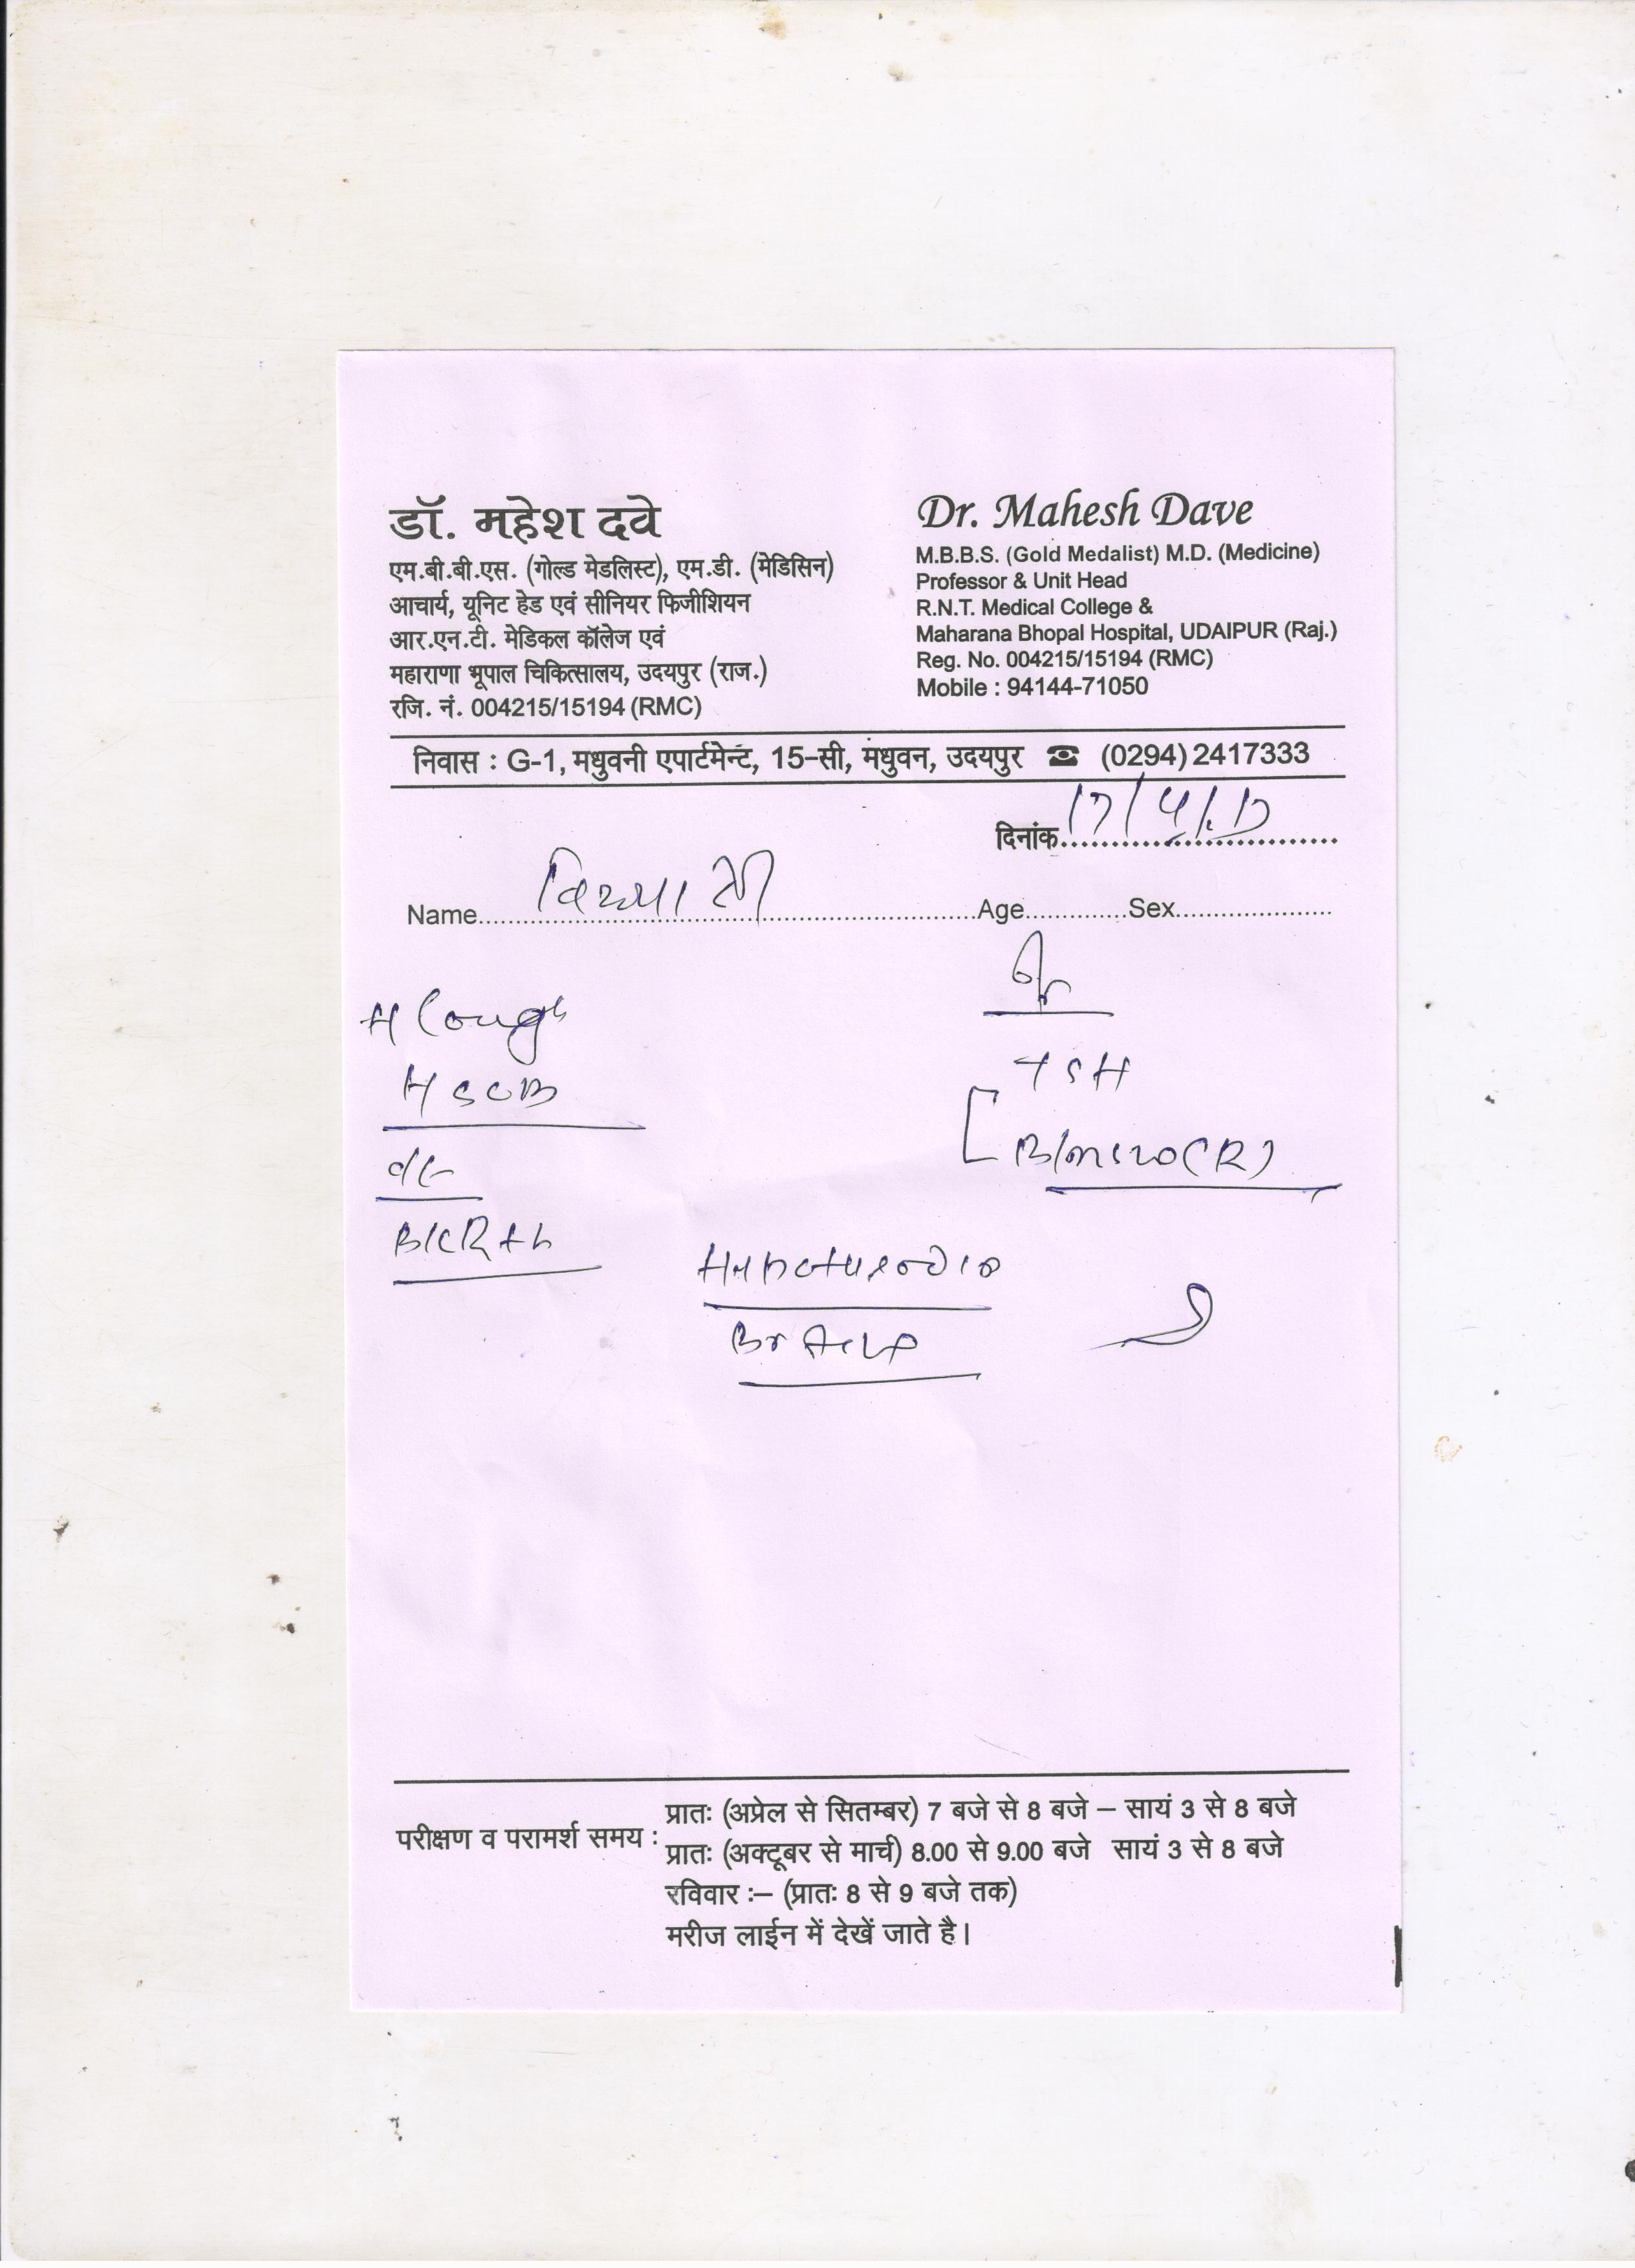 डॉ. महेश दवे
एम.बी.बी.एस. (गोल्ड मेडलिस्ट), एम.डी. (मेडिसिन)
आचार्य, यूनिट हेड एवं सीनियर फिजीशियन
आर.एन.टी. मेडिकल कॉलेज एवं
महाराणा भूपाल चिकित्सालय, उदयपुर (राज.)
रजि. नं. 004215/15194 (RMC)
Dr. Mahesh Dave
M.B.B.S. (Gold Medalist) M.D. (Medicine)
Professor & Unit Head
R.N.T. Medical College &
Maharana Bhopal Hospital, UDAIPUR (Raj.)
Reg. No. 004215/15194 (RMC)
Mobile : 94144-71050
निवास : G-1, मधुवनी एपार्टमेन्ट, 15-सी, मधुवन, उदयपुर ☎ (0294) 2417333
दिनांक 17/4/17
Name Age Sex
H Cough
TSH
परीक्षण व परामर्श समय :
प्रातः (अप्रेल से सितम्बर) 7 बजे से 8 बजे – सायं 3 से 8 बजे
प्रातः (अक्टूबर से मार्च) 8.00 से 9.00 बजे सायं 3 से 8 बजे
रविवार :– (प्रातः 8 से 9 बजे तक)
मरीज लाईन में देखें जाते है।